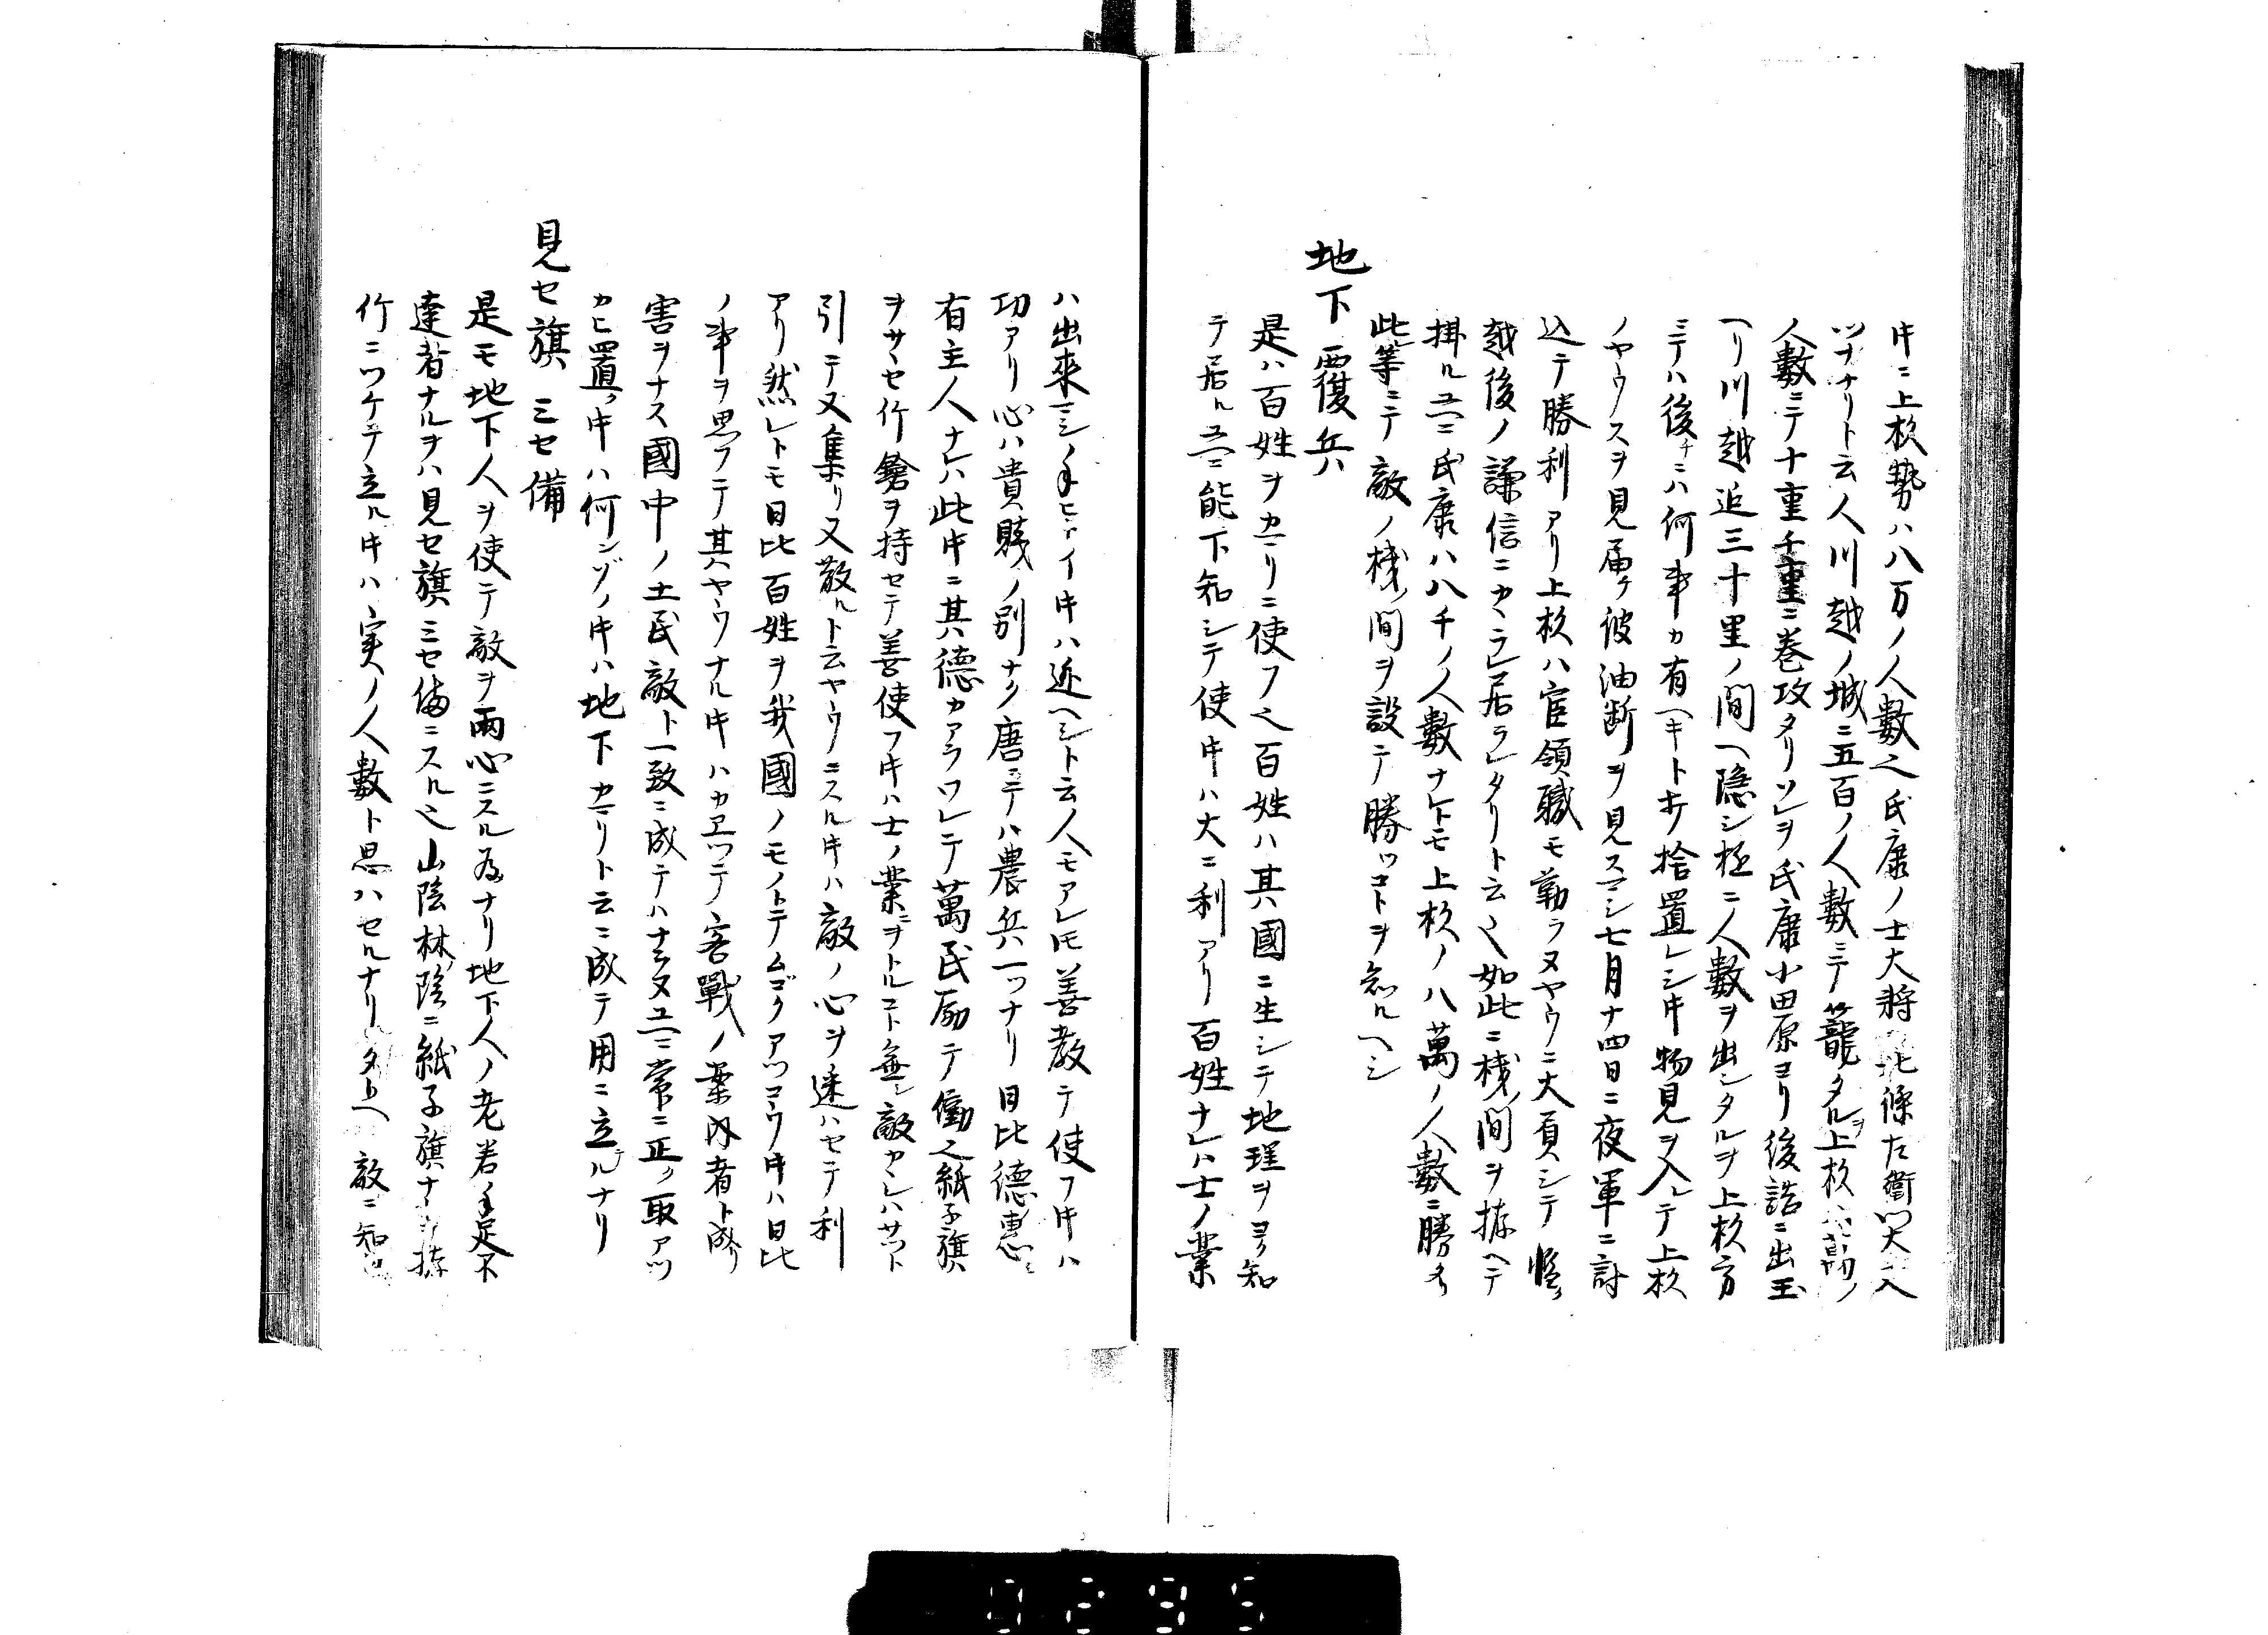 井ニ上杦勢ハ八万ノ人數也氏康ノ士大将北條左衛門大入
ツナナリト云人川越ノ城ニ五百ノ人數ニテ籠タルヲ上杦八万ノ
人數ニテ十重千重ニ巻攻タリソレヲ氏康小田原ヨリ後詰ニ出玉
ヘリ川越近三十里ノ間ヘ隠シ極ニ人數ヲ出シタルヲ上杦方
ニテハ後チニハ何事カ有ヘキトテ捨置レシ井物見ヲ入レテ上杦
ノヤウスヲ見届テ彼油断ヲ見スマシ七月十四日ニ夜軍ニ討
込テ勝利アリ上杦ハ官領職モ勤ラヌヤウニ大負シテ
越後ノ謙信ニカヽラレ居ラレタリト云々如此ニ桟間ヲ拵ヘテ
掛ルユヘニ氏康ハ八千ノ人數ナレトモ上杦ノ八萬ノ人數ニ勝タリ
此等ニテ敵ノ桟間ヲ設テ勝ツコトヲ知ルヘシ
地下覆兵
是ハ百姓ヲカマリニ使フ也百姓ハ其國ニ生シテ地理ヲヨク知
テ居ルユヘニ能下知シテ使井ハ大ニ利アリ百姓ナレハ士ノ業
ハ出來マシノ手ヒドイ井ハ近ヘシト云人モアレ𪜈善教テ使フ井ハ
功アリ心ハ貴賤ノ別ナク唐ニテハ農兵一ツナリ日比德惠
有主人ナレハ此井ニ其德カアラワレテ萬民励テ働也紙子旗
ヲサヽセ竹鎗ヲ持セテ善使フ井ハ士ノ業ニヲトルコト無シ敵カヽレハサット
引テ又集リ又散ルト云ヤウニスル井ハ敵ノ心ヲ迷ハセテ利
アリ然レトモ日比百姓ヲ我國ノモノトテムゴクアツコウ井ハ日比
ノ事ヲ思フテ其ヤウナル井ハカヱツテ客戰ノ案内者ト成リ
害ヲナス國中ノ土民敵ト一致ニ成テハナラヌユヘニ常ニ正ク取アツ
カヒ置ク井ハ何ンゾノ井ハ地下カマリト云ニ成テ用ニ立ルナリ
見セ旗ミセ備
是モ地下人ヲ使テ敵ヲ兩心ニスル為ナリ地下人ノ老若手足不
達者ナルヲハ見セ旗ミセ備ニスル也山陰林陰ニ紙子旗ナトヲ拵
竹ニツケテ立ル井ハ実ノ人數ト思ハセルナリ 敵ニ知